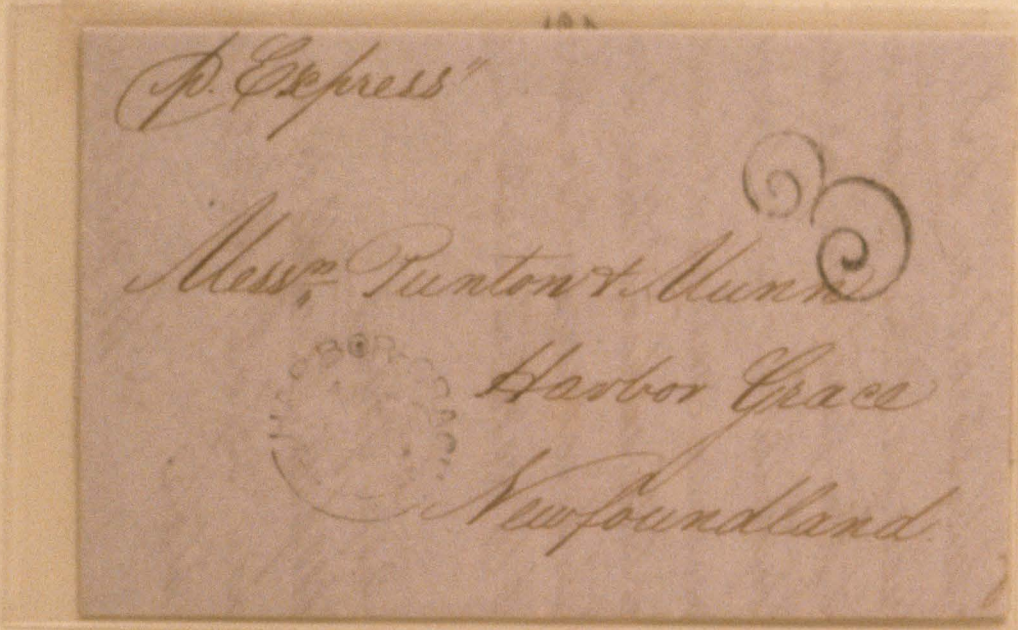 p. Express"
3
Messrs. Punton & Munn
Harbor Grace
Newfoundland.